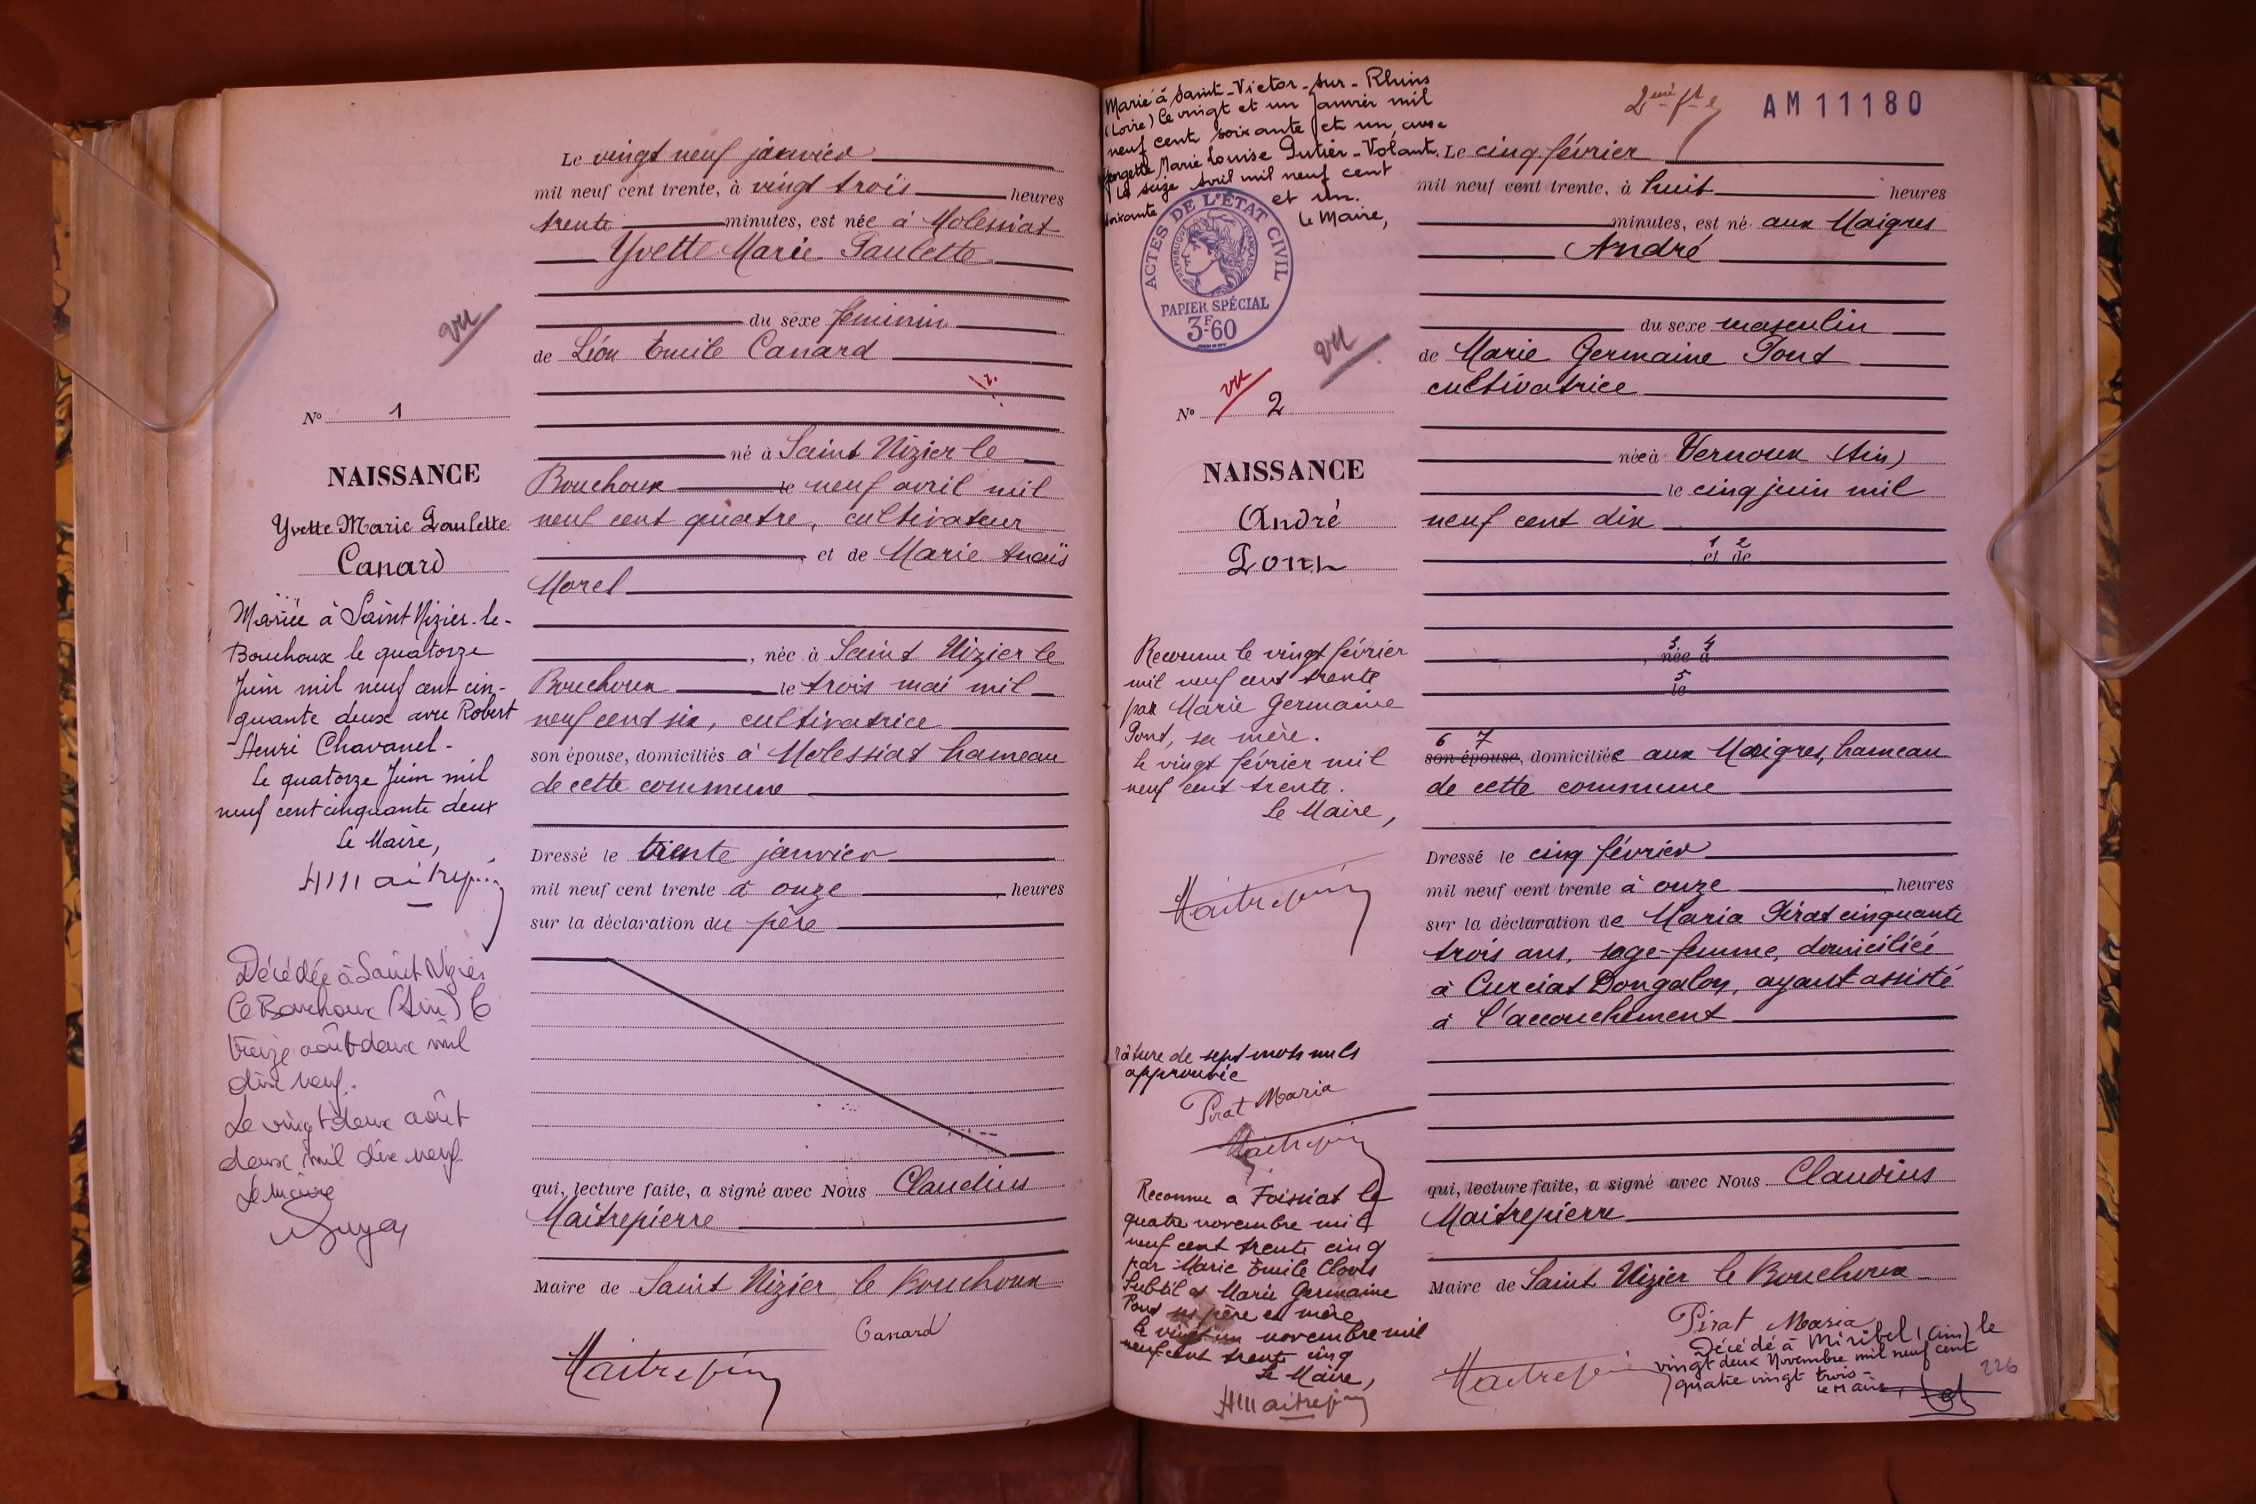 Le vingt neuf janvier
mil neuf cent trente, à vingt trois heures
trente minutes, est née à Molessiat
Yvette Marie Paulette
du sexe féminin
de Léon Emile Canard
vu
N° 1
né à Saint Nizier le
Bouchoux le neuf avril mil
neuf cent quatre, cultivateur
et de Marie Anaïs
Morel
, née à Saint Nizier le
Bouchoux le trois mai mil
neuf cent six, cultivatrice
son épouse, domiciliés à Molessiat hameau
de cette commune
Dressé le trente janvier
mil neuf cent trente à onze , heures
sur la déclaration du père
qui, lecture faite, a signé avec Nous Claudius
Maitrepierre
Maire de Saint Nizier le Bouchoux
Canard
Maitrepierre
NAISSANCE
Yvette Marie Paulette
Canard
Mariée à Saint Nizier-le-
Bouchoux le quatorze
Juin mil neuf cent cin-
quante deux avec Robert
Henri Chavanel-
Le quatorze Juin mil
neuf cent cinquante deux
Le Maire,
Décédée à Saint Nizier
Le Bouchoux (Ain) le
treize août deux mil
dix neuf.
Le vingt deux août
deux mil dix neuf
Le Maire
Marié à Saint-Victor-sur-Rhins
(Loire) le vingt et un Janvier mil
neuf cent soixante et un avec
Georgette Marie Louise Dutier-Volant.
Le seize Avril mil neuf cent
soixante et un.
Le Maire,
ACTES DE L'ÉTAT CIVIL
RÉPUBLIQUE FRANÇAISE
PAPIER SPÉCIAL
3F60
vu
vu
N° 2
NAISSANCE
André
Pont
Reconnu le vingt février
mil neuf cent trente
par Marie Germaine
Pont, sa mère.
Le vingt février mil
neuf cent trente.
Le Maire,
Maitrepierre
râture de sept mots nuls
approuvée
Pirat Maria
Maitrepierre
Reconnu a Foissiat le
quatre novembre mil
neuf cent trente cinq
par Marie Emile Clovis
Subtil et Marie Germaine
Pont ses père et mère
le vingt un novembre mil
neuf cent trente cinq
Le Maire,
2eme
AM 11180
Le cinq février
mil neuf cent trente, à huit heures
minutes, est né aux Maigres
André
du sexe masculin
de Marie Germaine Pont
cultivatrice
née à Vernoux (Ain)
le cinq juin mil
neuf cent dix
1 2
et de
3 4
, née à
5
le
6 7
son épouse, domiciliée aux Maigres, hameau
de cette commune
Dressé le cinq février
mil neuf cent trente à onze , heures
sur la déclaration de Maria Pirat cinquante
trois ans, sage-femme, domiciliée
à Curciat Dongalon, ayant assisté
à l'accouchement
qui, lecture faite, a signé avec Nous Claudius
Maitrepierre
Maire de Saint Nizier le Bouchoux
Pirat Maria
Maitrepierre
Décédé à Miribel (Ain) le
vingt deux Novembre mil neuf cent
quatre vingt trois-
Le Maire,
226